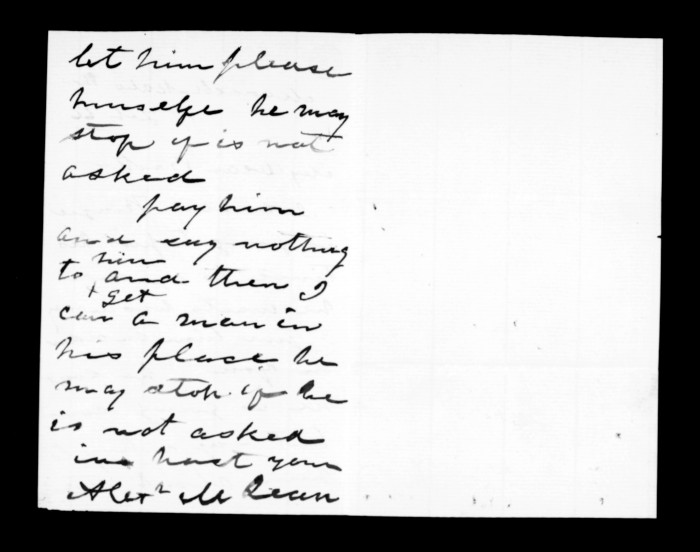 let him please
himselfe he may
stop if is not
asked
pay him
and say nothing
to him and then I
can get a man in
his plase he
may stop if he
is not asked
in hast your
Alexr McLean